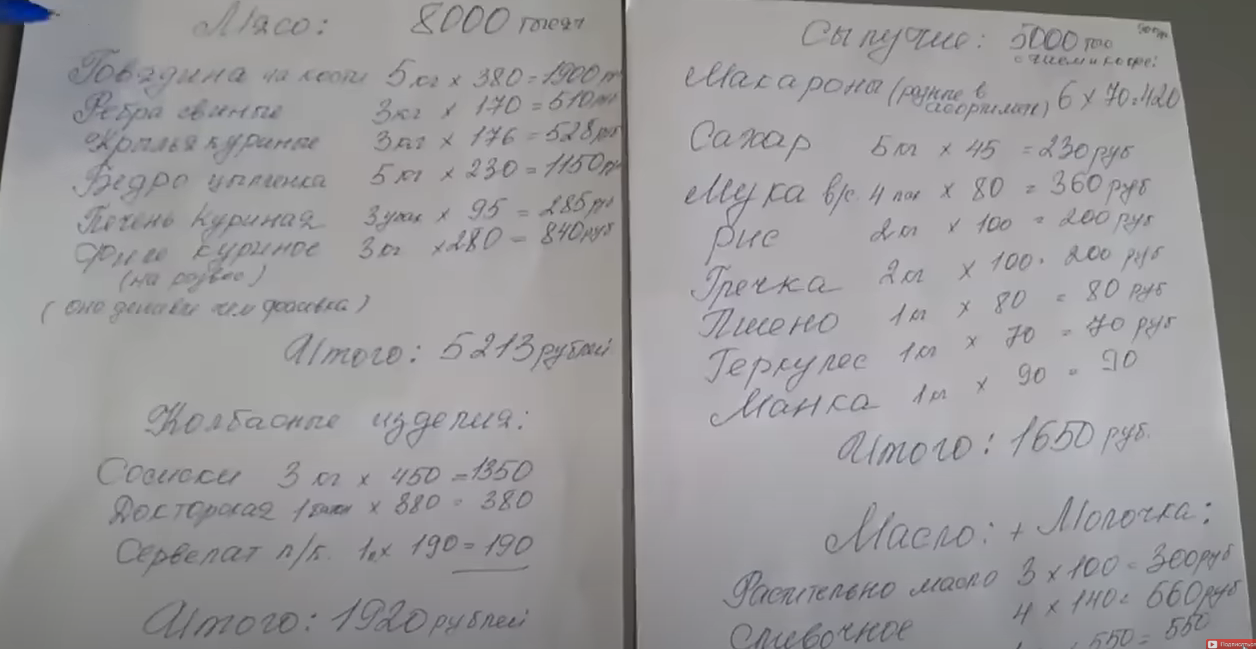 Мясо: 8000 тысяч
Говядина на кости 5кг х 380=1900
Ребра свиные 3кг х 170=510
Крылья куриные 3кг х 176=528руб
Бедро цыпленка 5кг х 230=1150
Печень куриная 3упак х 95=285
Филе куриное 3кг х280=840руб
(на развес)
(оно дешевле чем фасовка)
Итого: 5213рублей
Колбасные изделия:
Сосиски 3 кг х 450=1350
Докторская 1 х 380=380
Сервелат п/к. 1 х 190=190
Итого: 1920рублей
Сыпучие: 5000
с чаем и кофе:
Макароны (разные в ассортимен) 6 х 70=420
Сахар 5кг х 45 =230руб
Мука в/с. 4 пак х 80 =360руб
Рис 2кг х 100=200руб
Гречка 2кг х 100=200 руб
Пшено 1кг х 80 = 80 руб
Геркулес 1кг х 70 = 70 руб
Манка 1кг х 90 = 90
Итого: 1650руб.
Масло: + Молочка:
Растительно масло 3 х 100=300руб
Сливочное 4 х 140=560руб
550=550
Подписаться